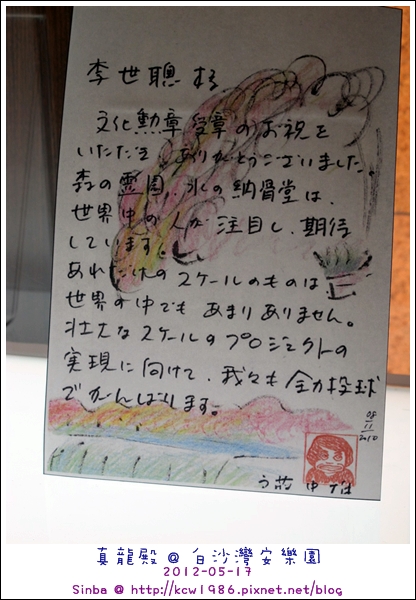 李世聰様
文化勲章受章のお祝を
いただき、ありがとうございました。
森の霊園、水の納骨堂は、
世界中の人が注目し、期待
しています。
あれだけのスケールのものは
世界の中でもあまりありません。
壮大なスケールのプロジェクトの
実現に向けて、我々も全力投球
でがんばります。
08
11
2010
真龍殿@白沙灣安樂園
2012-05-17
Sinba @ http://kcw1986.pixnet.net/blog